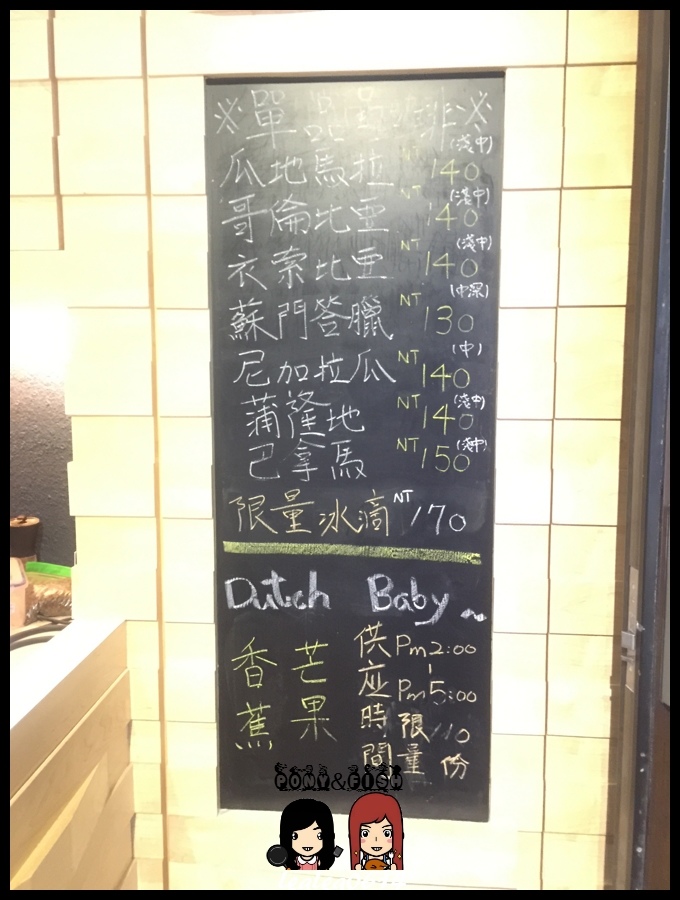 ※單品咖啡※
瓜地馬拉 NT 140 (淺中)
哥倫比亞 NT 140 (淺中)
衣索比亞 NT 140 (淺中)
蘇門答臘 NT 130 (中深)
尼加拉瓜 NT 140 (中)
蒲隆地 NT 140 (淺中)
巴拿馬 NT 150 (淺中)
限量冰滴 NT 170
Dutch Baby ~
香蕉
芒果
供应時間
Pm 2:00
-
Pm 5:00
限量 10 份
PONY&FISH